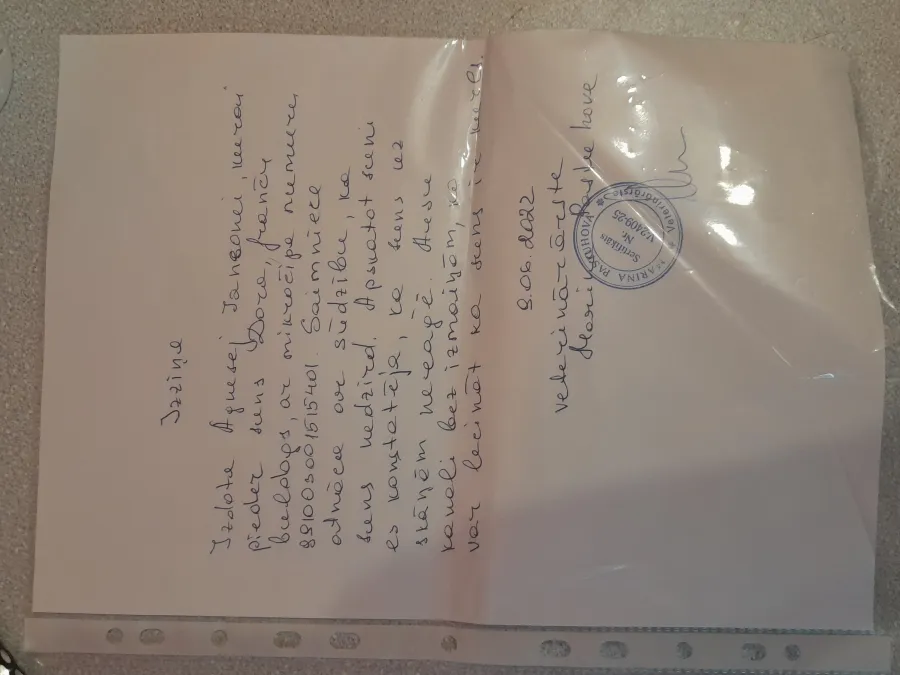 Izziņa
Izdota Agnesei Jansonei, kurai
pieder suns Dora, franču
buldogs, ar mikročipa numuru
991003001515401. Saimniece
atnāca ar sūdzību, ka
suns nedzird. Apskatot suni
es konstatēja, ka suns uz
skāņām nereaģē. Ausu
kanali bez izmaiņām, ka
var lecināt ka suns ir kurls.
9.06.2022
veterinārārste
Marina Paskuhove
MARINA PASKUHOVA
Veterinārārste
Sertifikāts
Nr.